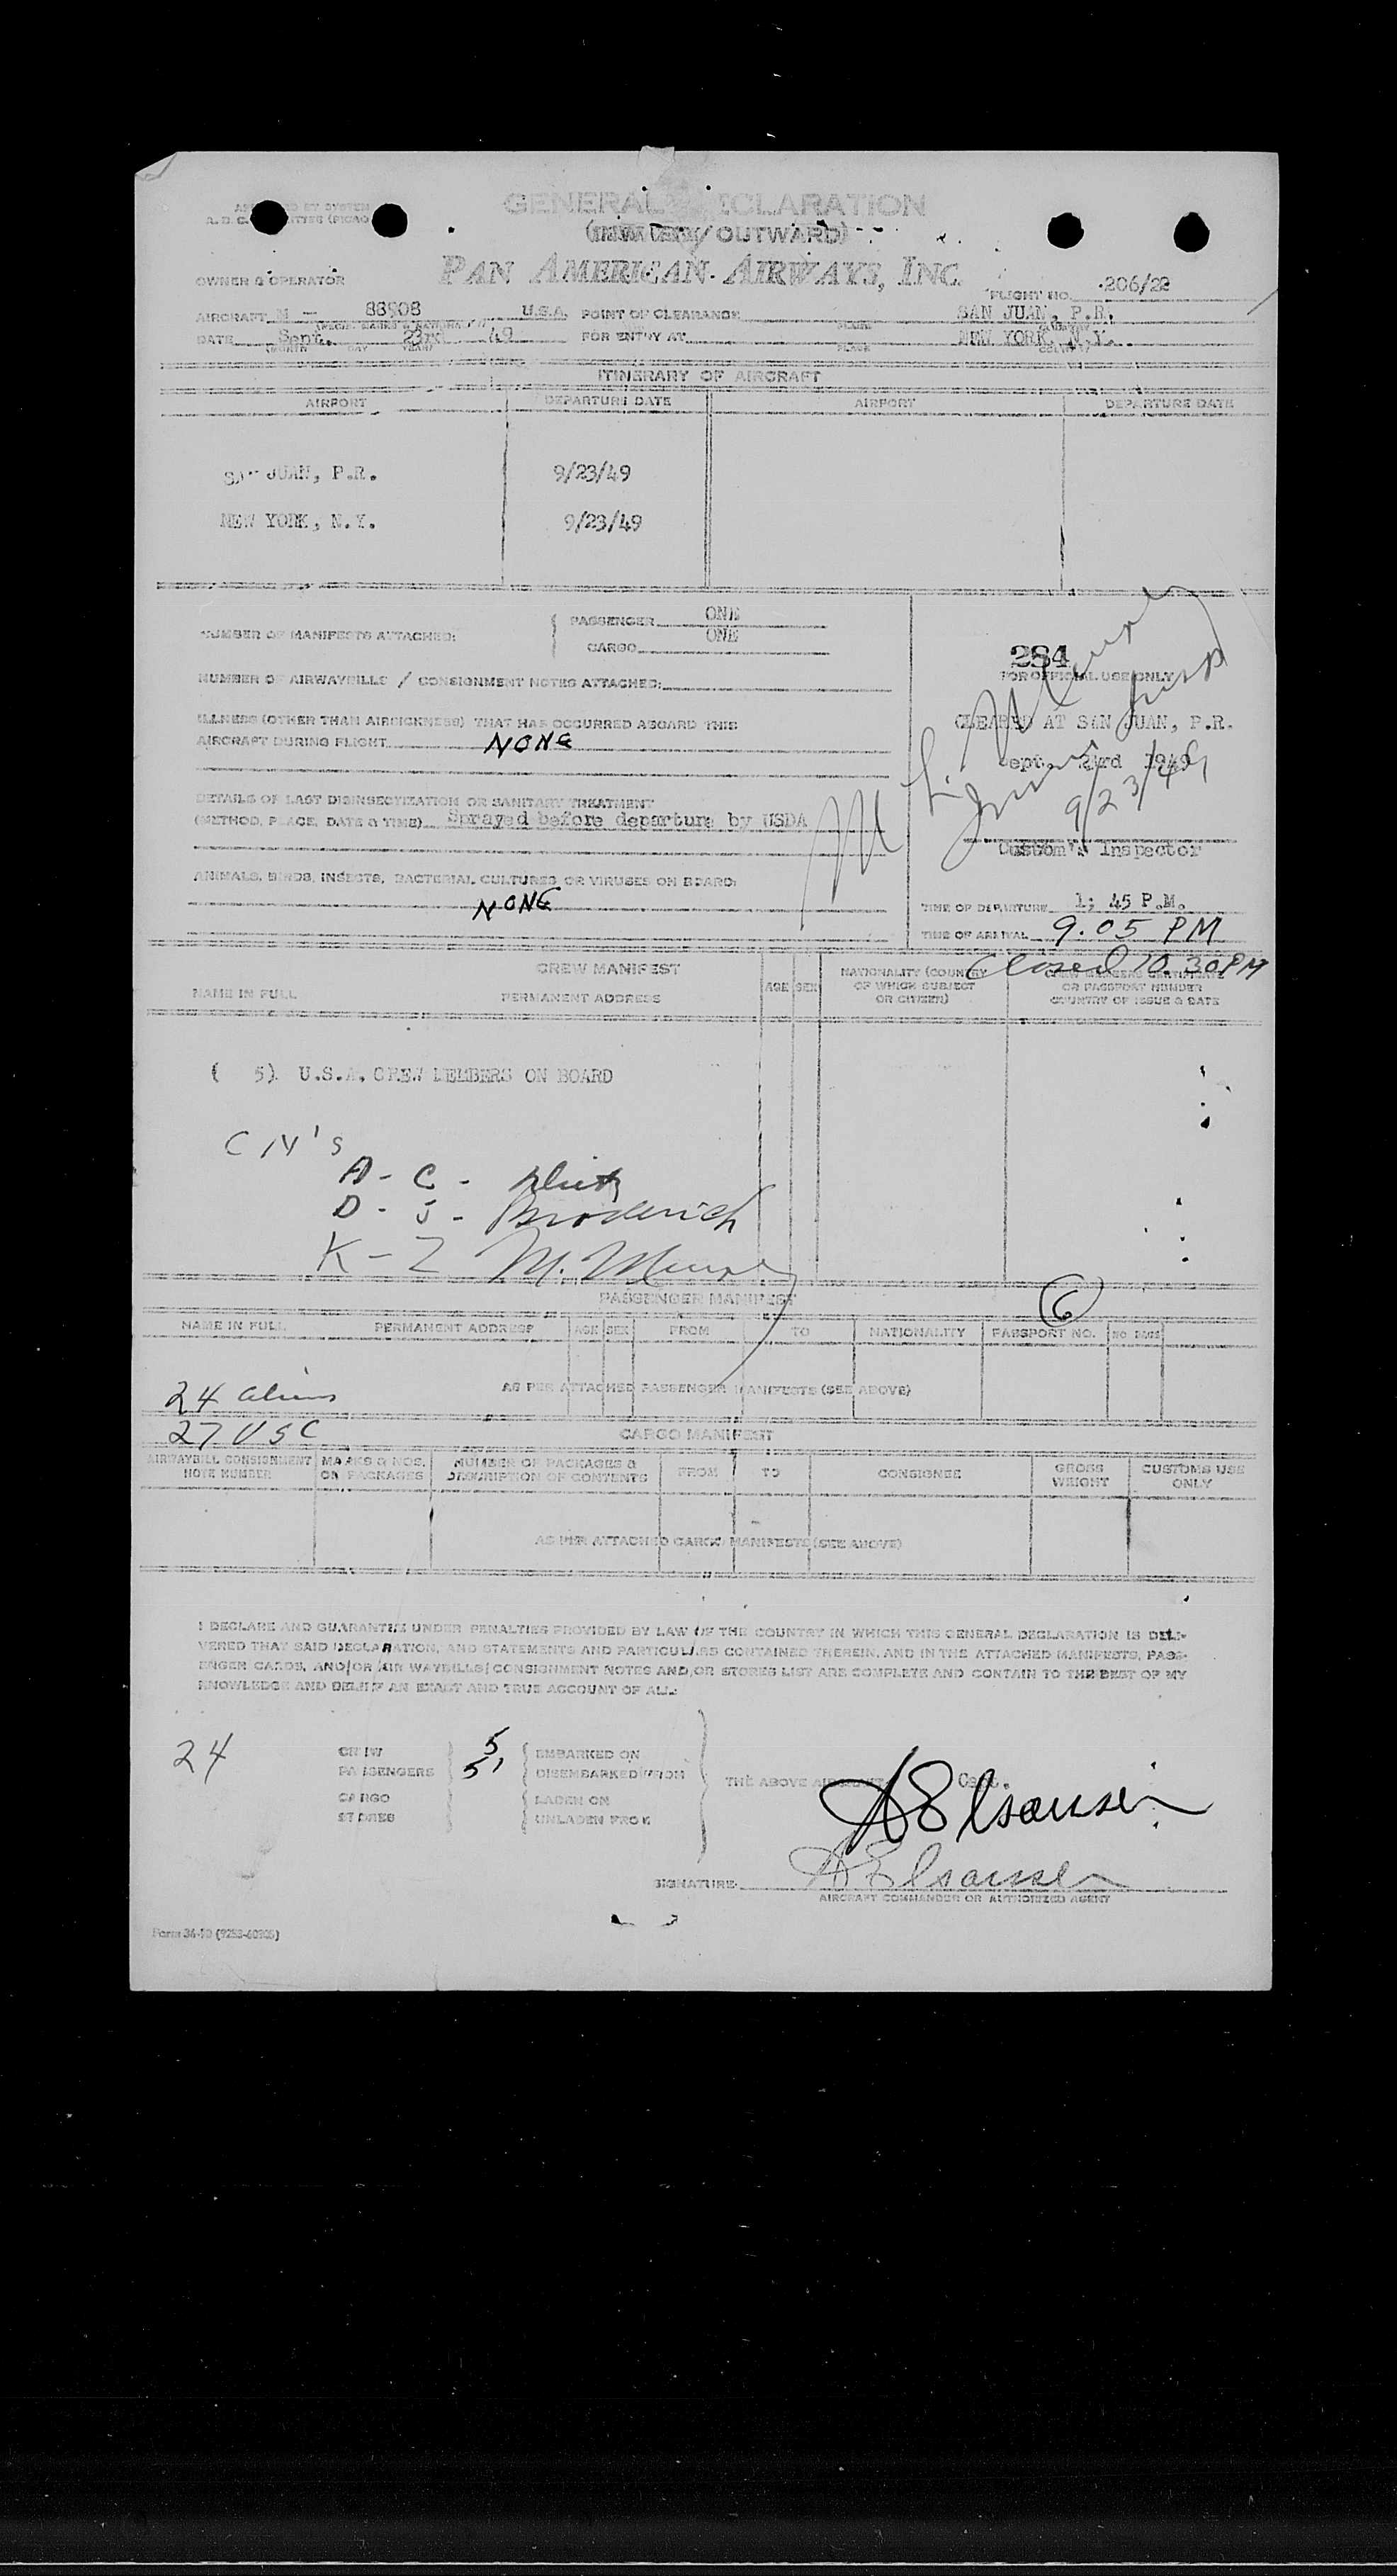 GENERAL DECLARATION
(INWARD/OUTWARD)
OWNER & OPERATOR PAN AMERICAN AIRWAYS, INC. FLIGHT NO. 206/22
AIRCRAFT N - 88908 U.S.A. POINT OF CLEARANCE SAN JUAN, P.R.
DATE Sept. 23rd 49 FOR ENTRY AT NEW YORK, N.Y.
(MONTH DAY YEAR) PLACE COUNTRY
ITINERARY OF AIRCRAFT
AIRPORT DEPARTURE DATE AIRPORT DEPARTURE DATE
SAN JUAN, P.R. 9/23/49
NEW YORK, N.Y. 9/23/49
NUMBER OF MANIFESTS ATTACHED:
PASSENGER ONE
CARGO ONE
NUMBER OF AIRWAYBILLS / CONSIGNMENT NOTES ATTACHED:
ILLNESS (OTHER THAN AIRSICKNESS) THAT HAS OCCURRED ABOARD THIS
AIRCRAFT DURING FLIGHT NONE
DETAILS OF LAST DISINSECTIZATION OR SANITARY TREATMENT
(METHOD, PLACE, DATE & TIME) Sprayed before departure by USDA
ANIMALS, BIRDS, INSECTS, BACTERIAL CULTURES OR VIRUSES ON BOARD:
NONE
284
FOR OFFICIAL USE ONLY
CLEARED AT SAN JUAN, P.R.
Sept. 23rd 1949
9/23/49
Custom's Inspector
TIME OF DEPARTURE 1; 45 P.M.
TIME OF ARRIVAL 9.05 PM
Closed 10.30 PM
CREW MANIFEST
NAME IN FULL PERMANENT ADDRESS AGE SEX
NATIONALITY (COUNTRY
OF WHICH SUBJECT
OR CITIZEN)
CREW MEMBERS CERTIFICATE
OR PASSPORT NUMBER
COUNTRY OF ISSUE & DATE
( 5) U.S.A. CREW MEMBERS ON BOARD
CM's
A - C -
D - J - Broderick
K - Z M. Murphy
6
PASSENGER MANIFEST
NAME IN FULL PERMANENT ADDRESS AGE SEX FROM TO NATIONALITY PASSPORT NO. NO. BAGS
AS PER ATTACHED PASSENGER MANIFESTS (SEE ABOVE)
24 aliens
27 USC
CARGO MANIFEST
AIRWAYBILL CONSIGNMENT NOTE NUMBER
MARKS & NOS. ON PACKAGES
NUMBER OF PACKAGES & DESCRIPTION OF CONTENTS
FROM TO CONSIGNEE
GROSS WEIGHT
CUSTOMS USE ONLY
AS PER ATTACHED CARGO MANIFESTS (SEE ABOVE)
I DECLARE AND GUARANTEE UNDER PENALTIES PROVIDED BY LAW OF THE COUNTRY IN WHICH THIS GENERAL DECLARATION IS DELI-
VERED THAT SAID DECLARATION, AND STATEMENTS AND PARTICULARS CONTAINED THEREIN, AND IN THE ATTACHED MANIFESTS, PASS-
ENGER CARDS, AND/OR AIR WAYBILLS/CONSIGNMENT NOTES AND/OR STORES LIST ARE COMPLETE AND CONTAIN TO THE BEST OF MY
KNOWLEDGE AND BELIEF AN EXACT AND TRUE ACCOUNT OF ALL:
24
CREW 5 EMBARKED ON
PASSENGERS 51 DISEMBARKED FROM
CARGO LADEN ON
STORES UNLADEN FROM
THE ABOVE AIRCRAFT Capt.
SIGNATURE
AIRCRAFT COMMANDER OR AUTHORIZED AGENT